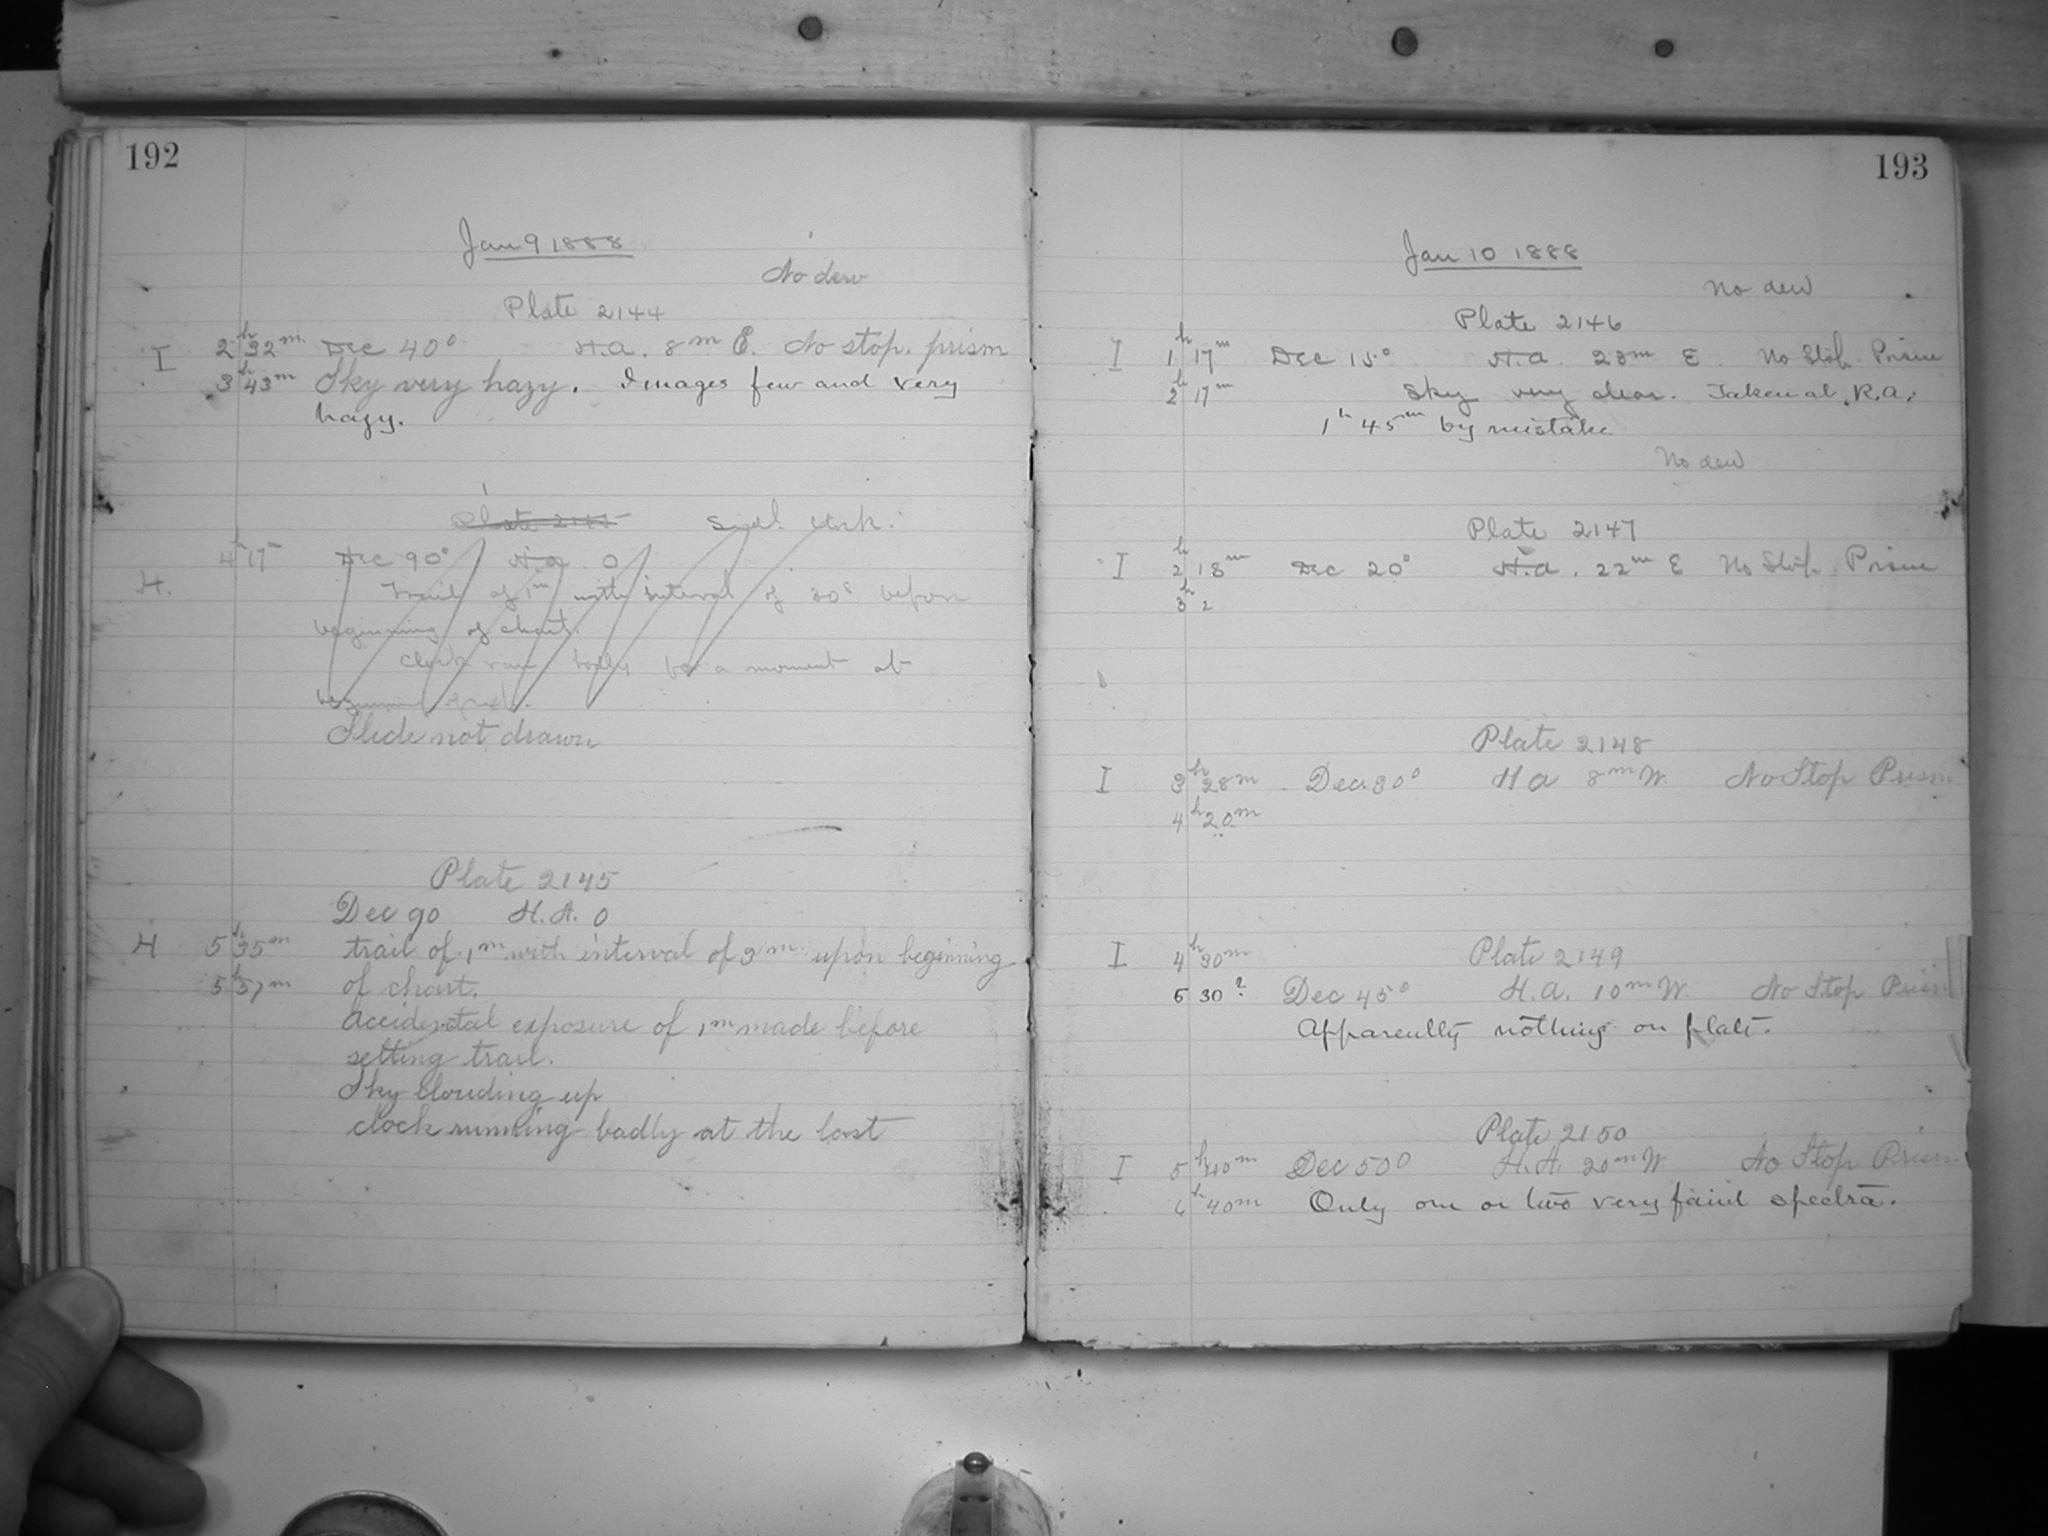 192
Jan 9 1888
No dew
Plate 2144
I 2h 32m Dec 40° H.A. 8m E. No stop. prism
3h 43m Sky very hazy. Images few and very
hazy.
Plate 2145 Sid. clock.
4h 17m Dec 90° H.a. 0
H. Trail of 1m with interval of 30s before
beginning of chart.
Clock ran badly for a moment at
beginning of
Slide not drawn
Plate 2145
Dec 90 H.A. 0
H 5h 35m trail of 1m with interval of 3m upon beginning
5h 57m of chart.
accidental exposure of 1m made before
setting trail.
Sky Clouding up
clock running badly at the last
193
Jan 10 1888
No dew
Plate 2146
I 1h 17m Dec 15° H.a. 23m E. No Stop. Prism
2h 17m Sky very clear. Taken at R.A.
1h 45m by mistake
No dew
Plate 2147
I 2h 18m Dec 20° H.a. 22m E No Stop. Prism
3h 2
Plate 2148
I 3h 28m Dec 30° H a 8m W. No Stop Prism
4h 20m
I 4h 30m Plate 2149
5 30? Dec 45° H.a. 10m W. No Stop Prism
Apparently nothing on plate.
Plate 2150
I 5h 40m Dec 50° H.A. 20m W No Stop Prism
6h 40m Only one or two very faint spectra.